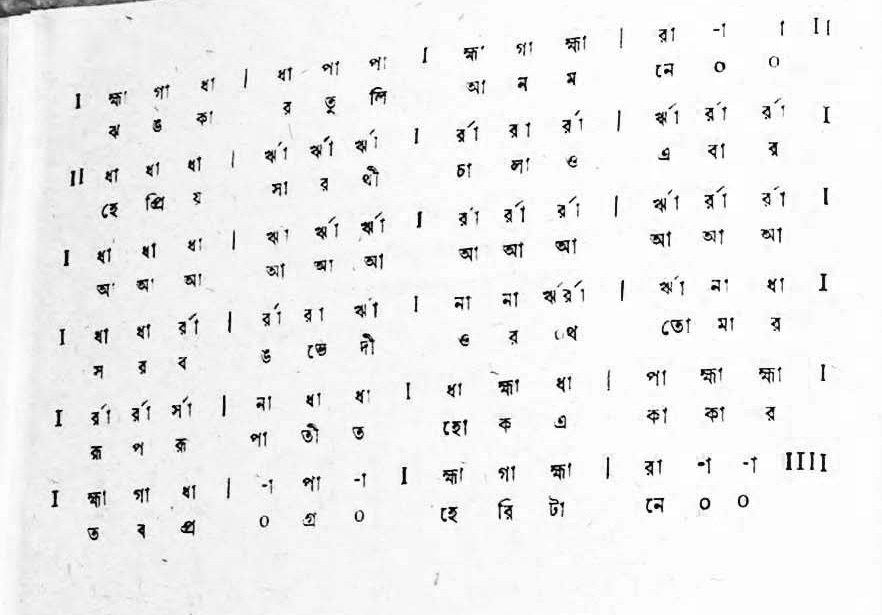 I হ্মা গা ধা | ধা পা পা I হ্মা গা হ্মা | রা -া া II
ঝ ঙ কা র তু লি আ ন ম নে ০ ০
II ধা ধা ধা | র্ঋা র্ঋা র্ঋা I র্রা রা র্রা | র্ঋা র্রা র্রা I
হে প্রি য় সা র থী চা লা ও এ বা র
I ধা ধা ধা | ঋা র্ঋা র্ঋা I র্রা র্রা র্রা | র্ঋা র্রা র্রা I
আ আ আ আ আ আ আ আ আ আ আ আ
I ধা ধা র্রা | র্রা রা র্ঋা I না না র্ঋর্রা | র্ঋা না ধা I
স র ব ঙ ভে দী ও র ০থ তো মা র
I র্রা র্রা র্সা | না ধা ধা I ধা হ্মা ধা | পা হ্মা হ্মা I
রূ প রূ পা তী ত হো ক এ কা কা র
I হ্মা গা ধা | -া পা -া I হ্মা গা হ্মা | রা -া -া IIII
ত ব প্র ০ গ্র ০ হে রি টা নে ০ ০